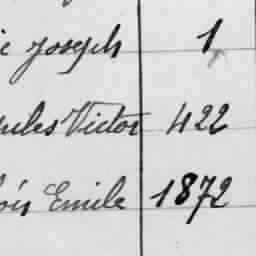 Joseph 1
Jules Victor 422
Emile 1872